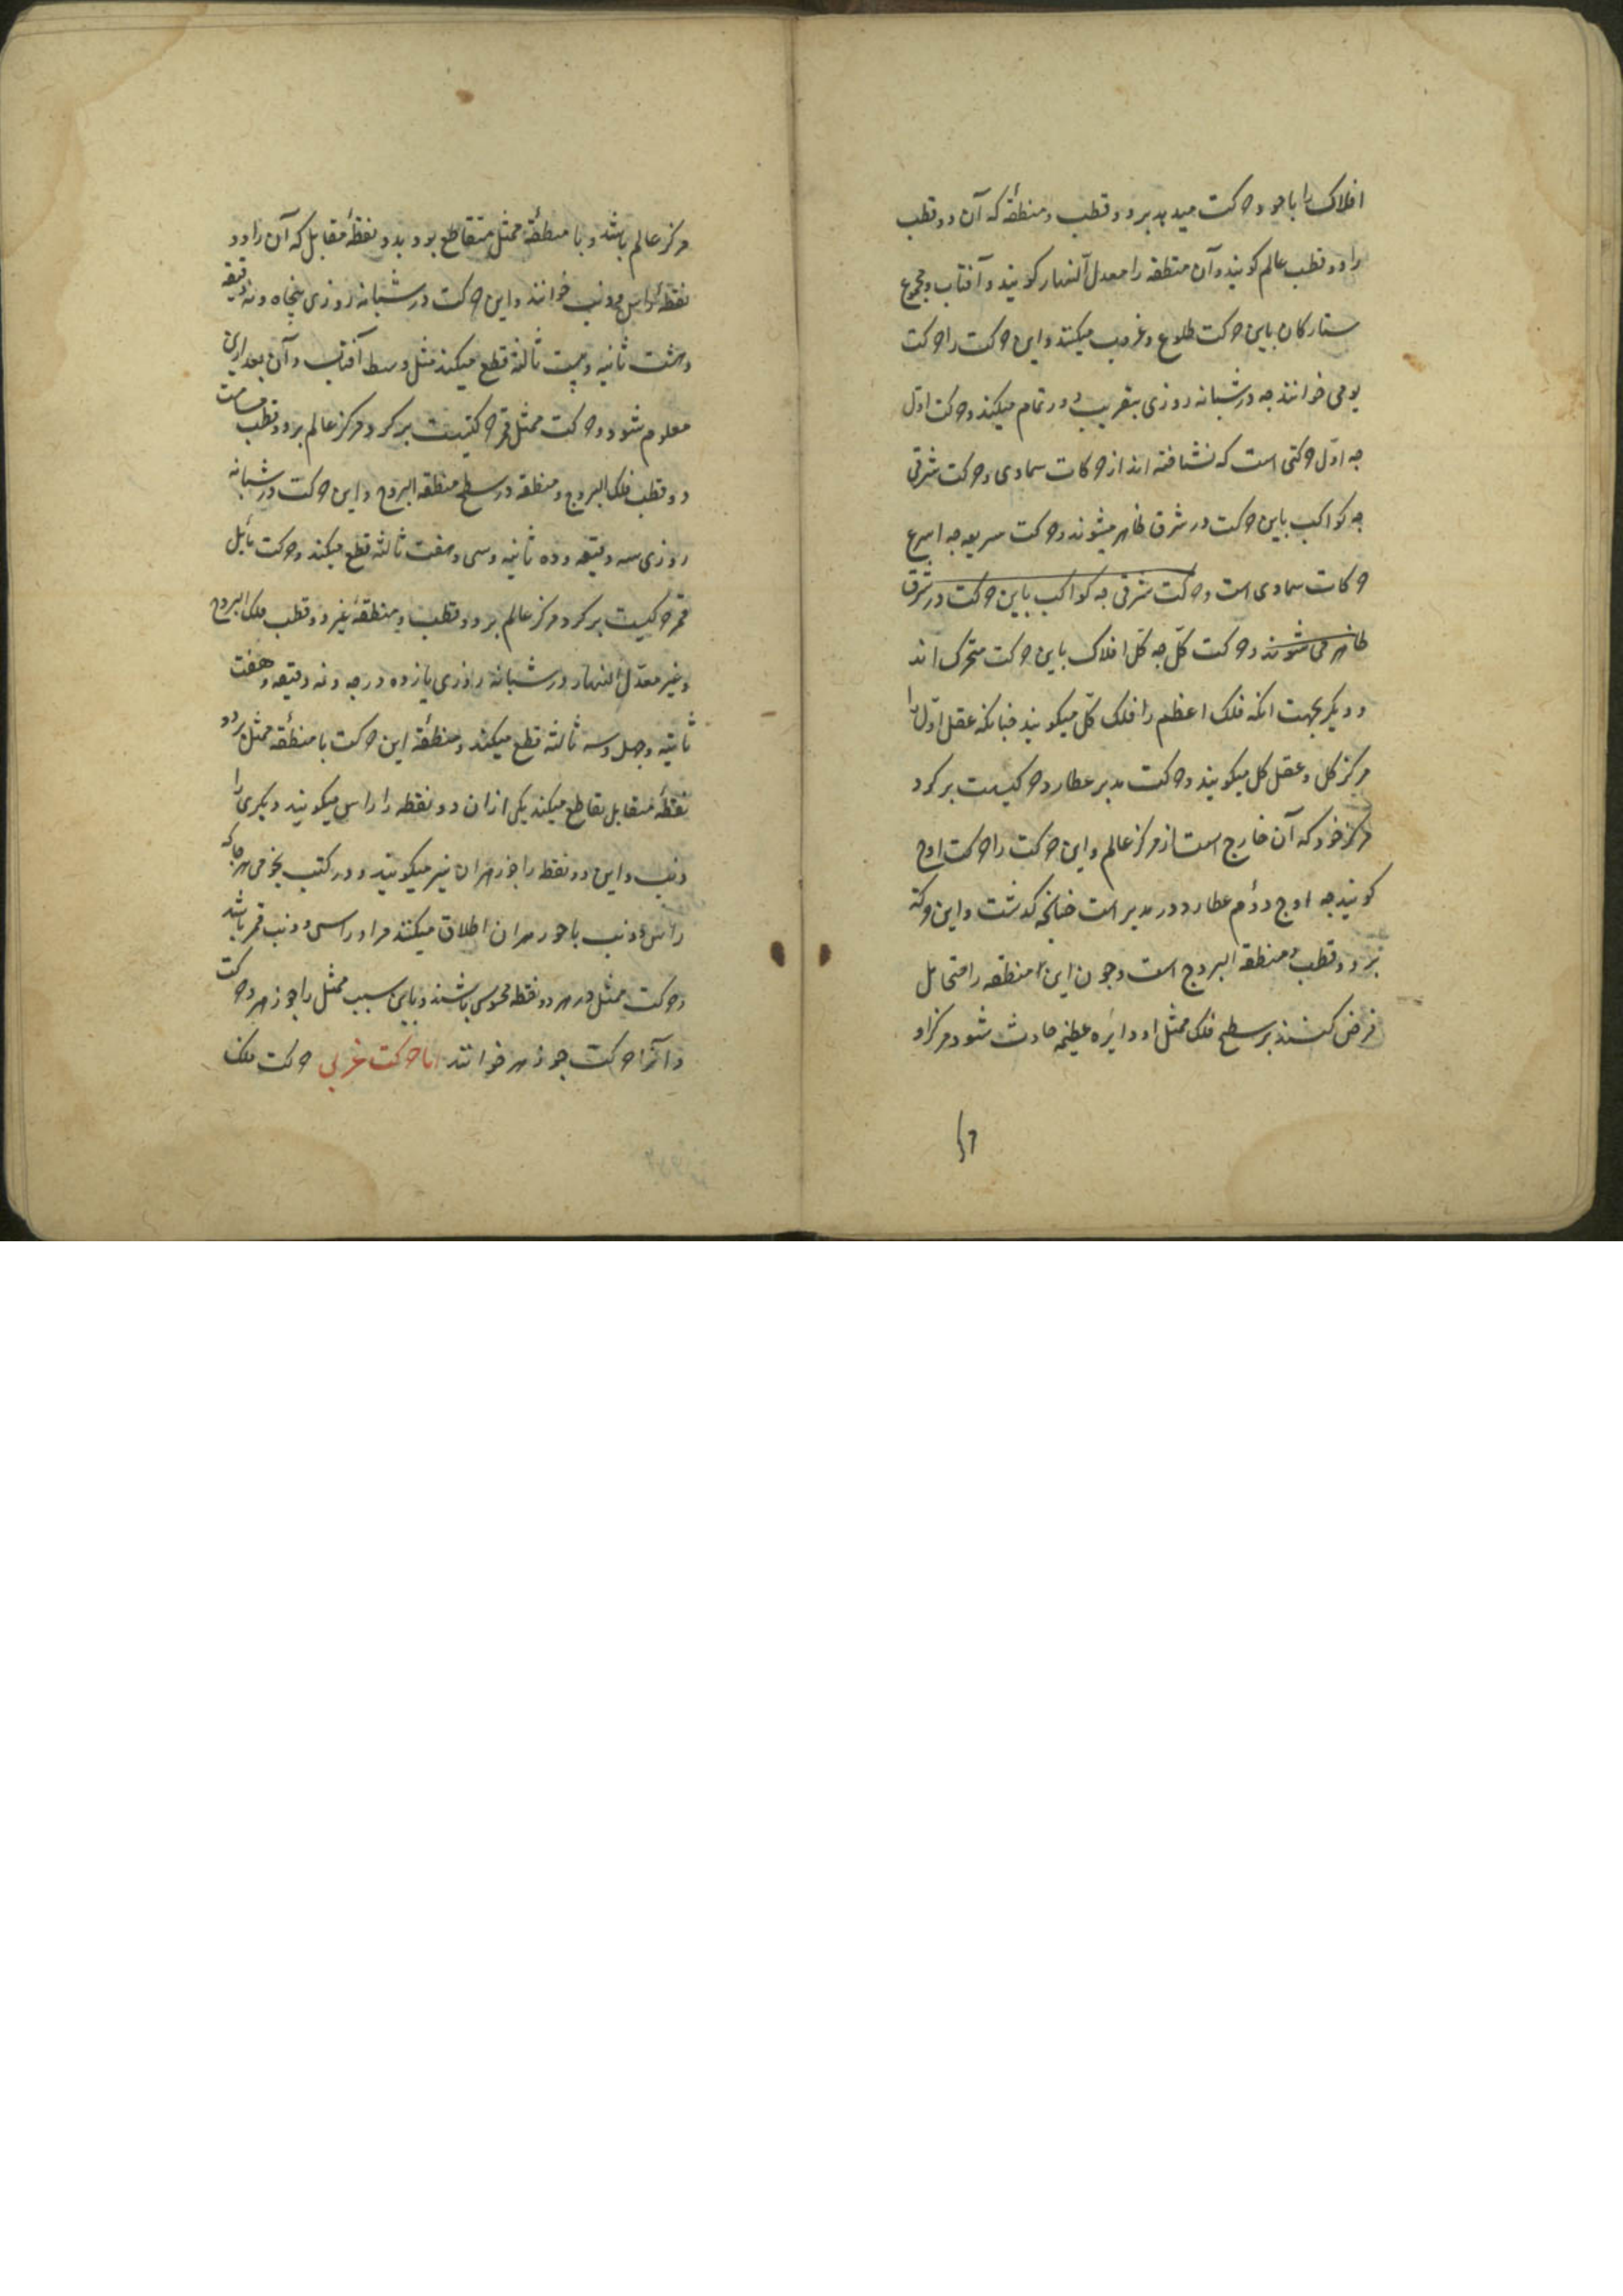 افلاک را با خود حرکت میدهد بر دو قطب و منطقهٔ که آن دو قطب
را دو قطب عالم کویند و آن منطقه را معدل النهار کویند و آفتاب و مجموع
ستارکان باین حرکت طلوع و غروب میکنند و این حرکت را حرکت
یومی خوانند جه در شبانه روزی بتقریب دور تمام میکند و حرکت اول
جه اول حرکتی است که نشناخته اند از حرکات سماوی و حرکت شرقی
جه کواکب باین حرکت در شرق ظاهر میشوند و حرکت سریعه جه اسرع
حرکات سماوی است و حرکت شرقی جه کواکب باین حرکت در شرق
ظاهر می شوند و حرکت کل جه کل افلاک باین حرکت متحرک اند
و دیکر بجهت انکه فلک اعظم را فلک کل میکویند جنانکه عقل اول را
مرکز کل و عقل کل میکویند و حرکت مدیر عطارد حرکتیست بر کرد
مرکز خود که آن خارج است از مرکز عالم و این حرکت را حرکت اوج
کویند جه اوج دوم عطارد در مدیر است جنانجه کذشت و این حرکت
بر دو قطب و منطقه البروج است و جون این منطقه را متحایل
فرض کنند بر سطح فلک ممثل او دایره عظیمه حادث شود مرکز او
مرکز عالم باشد و با منطقهٔ ممثل متقاطع بود بدو نقطهٔ مقابل که آن را دو
نقطهٔ راس و ذنب خوانند و این حرکت در شبانه روزی پنجاه و نه دقیقه
و هشت ثانیه و بیست ثالثه قطع میکند مثل وسط آفتاب و آن بعد ازین
معلوم شود و حرکت ممثل قمر حرکتیست بر کرد مرکز عالم بر دو قطب مسامت
دو قطب فلک البروج و منطقه در سطح منطقه البروج و این حرکت در شبانه
روزی سه دقیقه و ده ثانیه و سی و هفت ثالثه قطع میکند و حرکت مایل
قمر حرکتیست بر کرد مرکز عالم بر دو قطب و منطقهٔ غیر دو قطب فلک البروج
و غیر معدل النهار در شبانه روزی یازده درجه و نه دقیقه و هفت
ثانیه و جهل و سه ثالثه قطع میکند و منطقهٔ این حرکت با منطقهٔ ممثل بر دو
نقطهٔ متقابل تقاطع میکند یکی ازان دو نقطه را راس میکویند و دیکری را
ذنب و این دو نقطه را جوزهران نیز میکویند و در کتب نجومی هرجا که
راس و ذنب یا جوزهران اطلاق میکنند مراد راس و ذنب قمر باشد
و حرکت ممثل در هر دو نقطه محسوس باشند و باین سبب ممثل را جوزهر و حرکت
و آنرا حرکت جوزهر خوانند اما حرکت غربی حرکت فلک